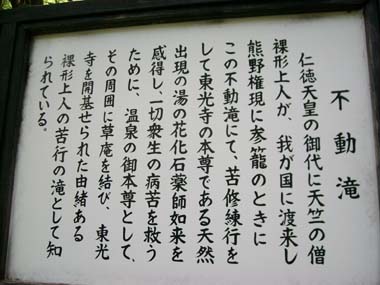 不動滝
仁徳天皇の御代に天竺の僧
裸形上人が、我が国に渡来し
熊野権現に参籠のときに
この不動滝にて、苦修練行を
して東光寺の本尊である天然
出現の湯の花化石薬師如来を
感得し、一切衆生の病苦を救う
ために、温泉の御本尊として、
その周囲に草庵を結び、東光
寺を開基せられた由緒ある
裸形上人の苦行の滝として知
られている。